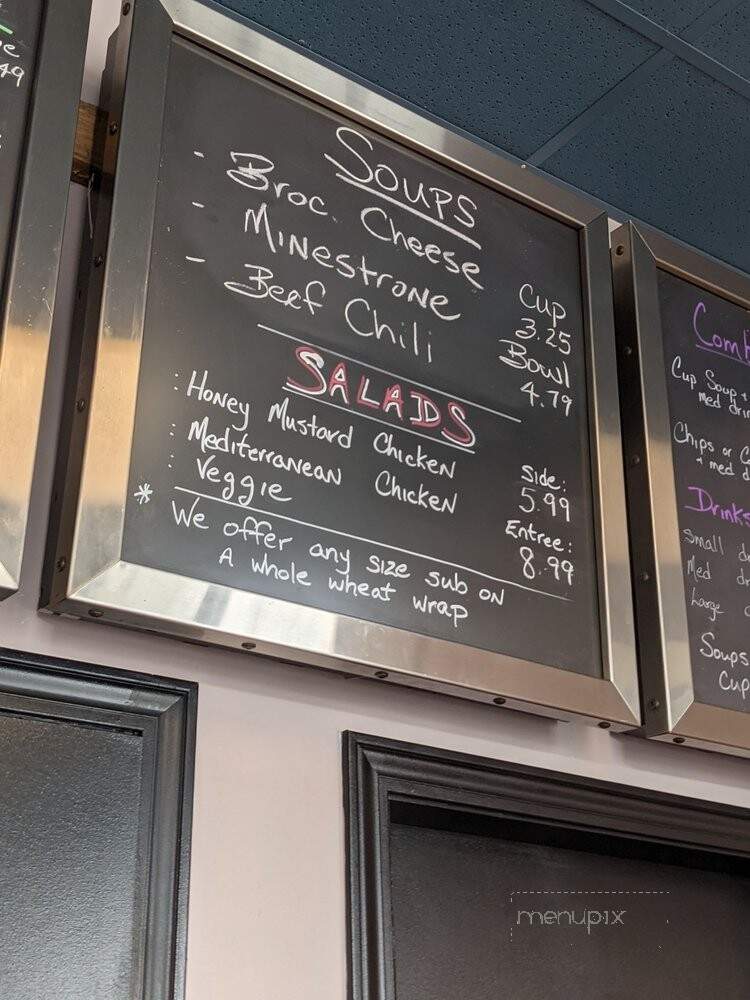 49
Soups
- Broc. Cheese
- Minestrone
- Beef Chili
Cup
3.25
Bowl
4.79
SALADS
: Honey Mustard Chicken
: Mediterranean Chicken
: Veggie
Side:
5.99
Entree:
8.99
* We offer any size sub on
A whole wheat wrap
Cup Soup +
Chips or
+ med
Drinks
Small
Med
Large
Soups
Cup
menupix